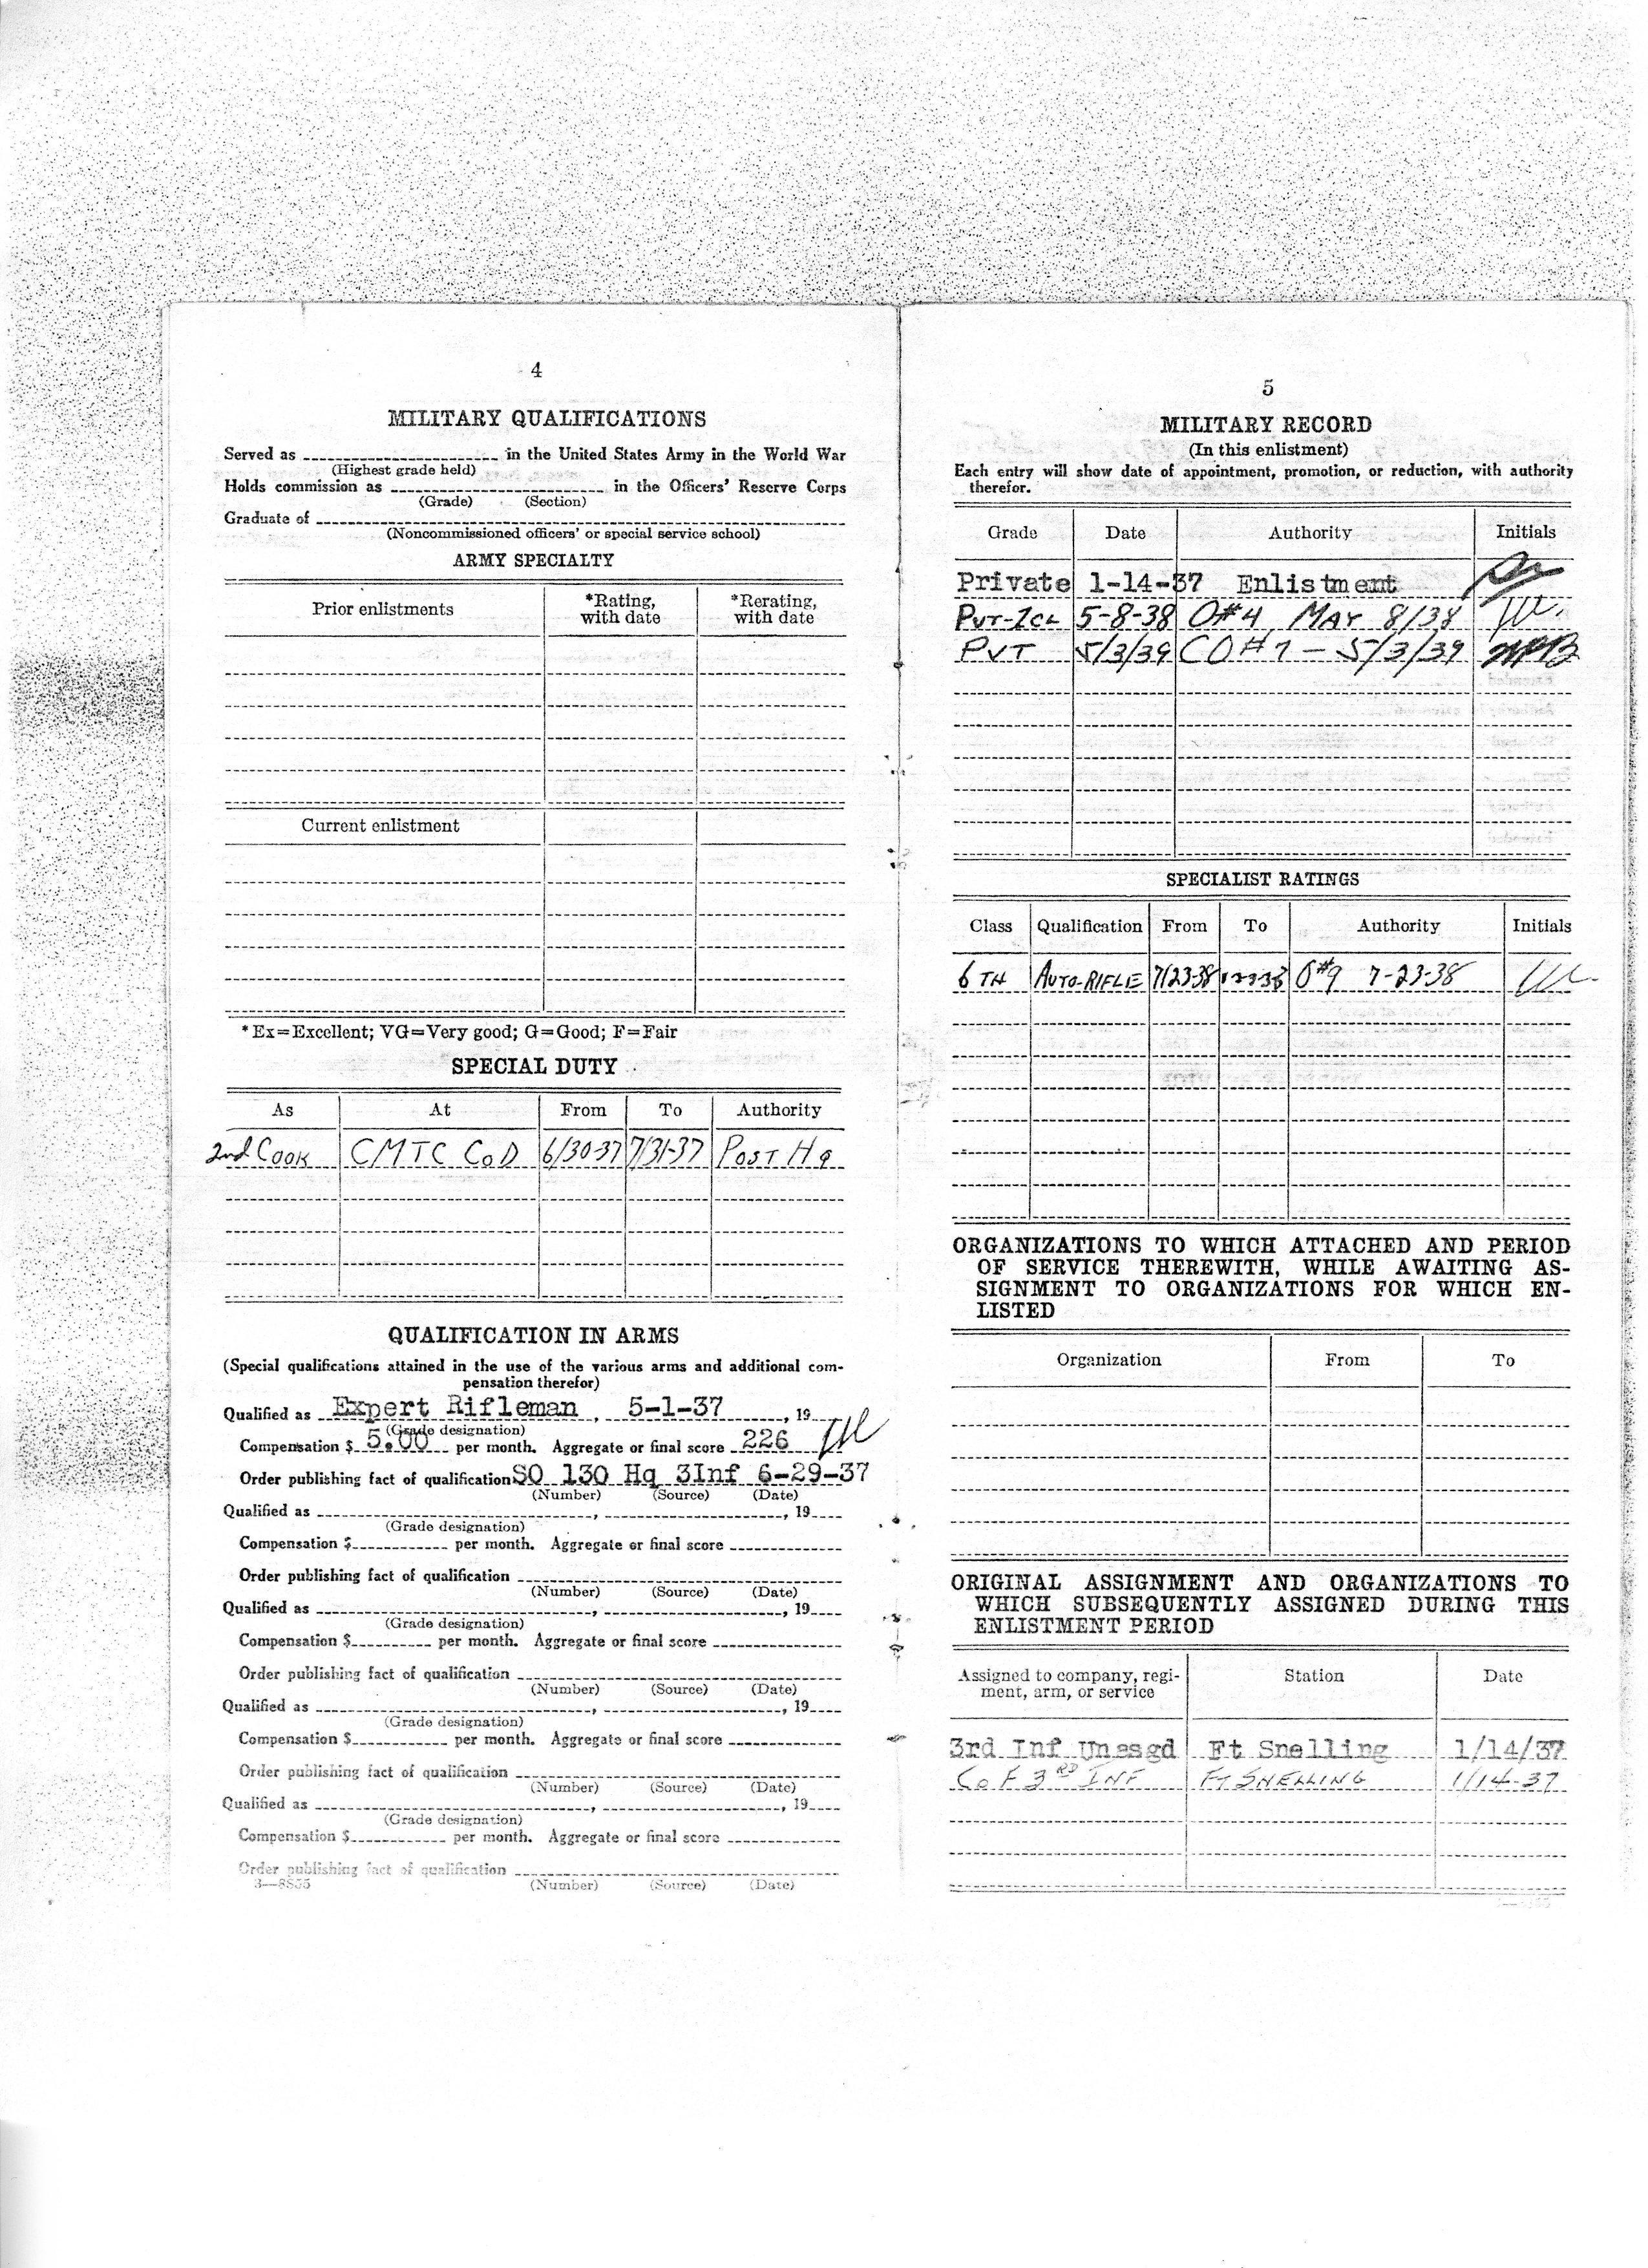 4
MILITARY QUALIFICATIONS
Served as in the United States Army in the World War
(Highest grade held)
Holds commission as in the Officers' Reserve Corps
(Grade) (Section)
Graduate of
(Noncommissioned officers' or special service school)
ARMY SPECIALTY
Prior enlistments *Rating, with date *Rerating, with date
Current enlistment
*Ex=Excellent; VG=Very good; G=Good; F=Fair
SPECIAL DUTY
As At From To Authority
2nd Cook CMTC Co D 6/30-37 7/31-37 Post Hq
QUALIFICATION IN ARMS
(Special qualifications attained in the use of the various arms and additional com-
pensation therefor)
Qualified as Expert Rifleman, 5-1-37, 19
(Grade designation)
Compensation $ 5.00 per month. Aggregate or final score 226
Order publishing fact of qualification SO 130 Hq 3Inf 6-29-37
(Number) (Source) (Date)
Qualified as , , 19
(Grade designation)
Compensation $ per month. Aggregate or final score
Order publishing fact of qualification
(Number) (Source) (Date)
Qualified as , , 19
(Grade designation)
Compensation $ per month. Aggregate or final score
Order publishing fact of qualification
(Number) (Source) (Date)
Qualified as , , 19
(Grade designation)
Compensation $ per month. Aggregate or final score
Order publishing fact of qualification
(Number) (Source) (Date)
Qualified as , , 19
(Grade designation)
Compensation $ per month. Aggregate or final score
Order publishing fact of qualification
3—8855 (Number) (Source) (Date)
5
MILITARY RECORD
(In this enlistment)
Each entry will show date of appointment, promotion, or reduction, with authority
therefor.
Grade Date Authority Initials
Private 1-14-37 Enlistment
Pvt-1cl 5-8-38 O#4 MAY 8/38
PVT 5/3/39 CO#7 — 5/3/39
SPECIALIST RATINGS
Class Qualification From To Authority Initials
6TH AUTO-RIFLE 7/23-38 O#9 7-23-38
ORGANIZATIONS TO WHICH ATTACHED AND PERIOD
OF SERVICE THEREWITH, WHILE AWAITING AS-
SIGNMENT TO ORGANIZATIONS FOR WHICH EN-
LISTED
Organization From To
ORIGINAL ASSIGNMENT AND ORGANIZATIONS TO
WHICH SUBSEQUENTLY ASSIGNED DURING THIS
ENLISTMENT PERIOD
Assigned to company, regi-
ment, arm, or service Station Date
3rd Inf Unasgd Ft Snelling 1/14/37
Co F 3RD INF FT SNELLING 1/14-37